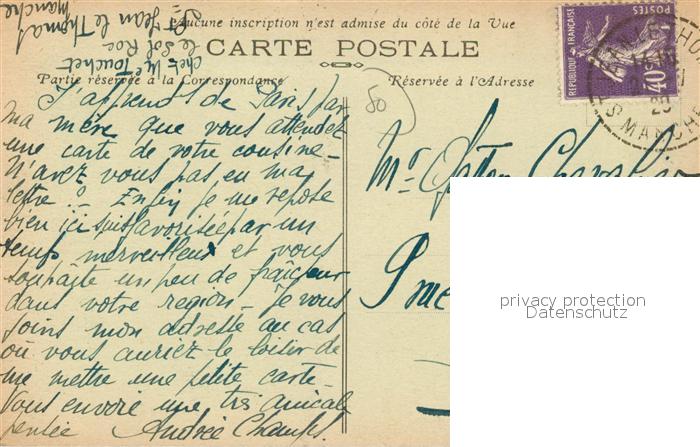 Aucune inscription n'est admise du côté de la Vue
CARTE POSTALE
Partie réservée à la Correspondance
Réservée à l'Adresse
chez Me Touchet
le Sol Roc
St Jean le Thomas
Manche
J'apprend de Paris par
ma mère que vous attendez
une carte de votre cousine -
N'avez vous pas eu ma
lettre ? - Enfin je me repose
bien ici suis favorisée par un
temps merveilleux et vous
souhaite un peu de fraîcheur
dans votre region - Je vous
joins mon adresse au cas
où vous auriez le loisir de
me mettre une petite carte -
Vous envoie une très amicale
pensée Andrée
50
Mr
REPUBLIQUE FRANÇAISE
POSTES
40c
MANCHE
privacy protection
Datenschutz